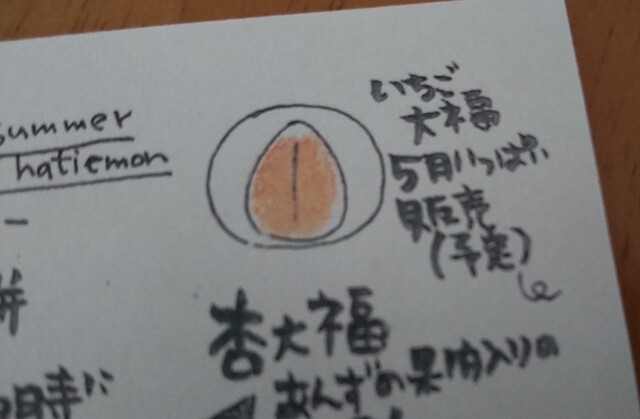 summer
hatiemon
いちご
大福
5月いっぱい
販売
(予定)
杏大福
あんずの果肉入りの
時に